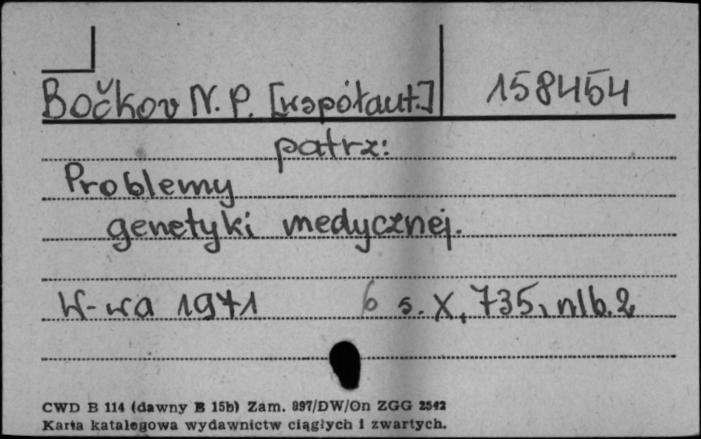 Bočkov N. P. [współaut.] 158454
patrz:
Problemy
genetyki medycznej.
W-wa 1971 6 s. X, 735, nlb. 2
CWD B 114 (dawny B 15b) Zam. 897/DW/On ZGG 2542
Karta katalogowa wydawnictw ciągłych i zwartych.